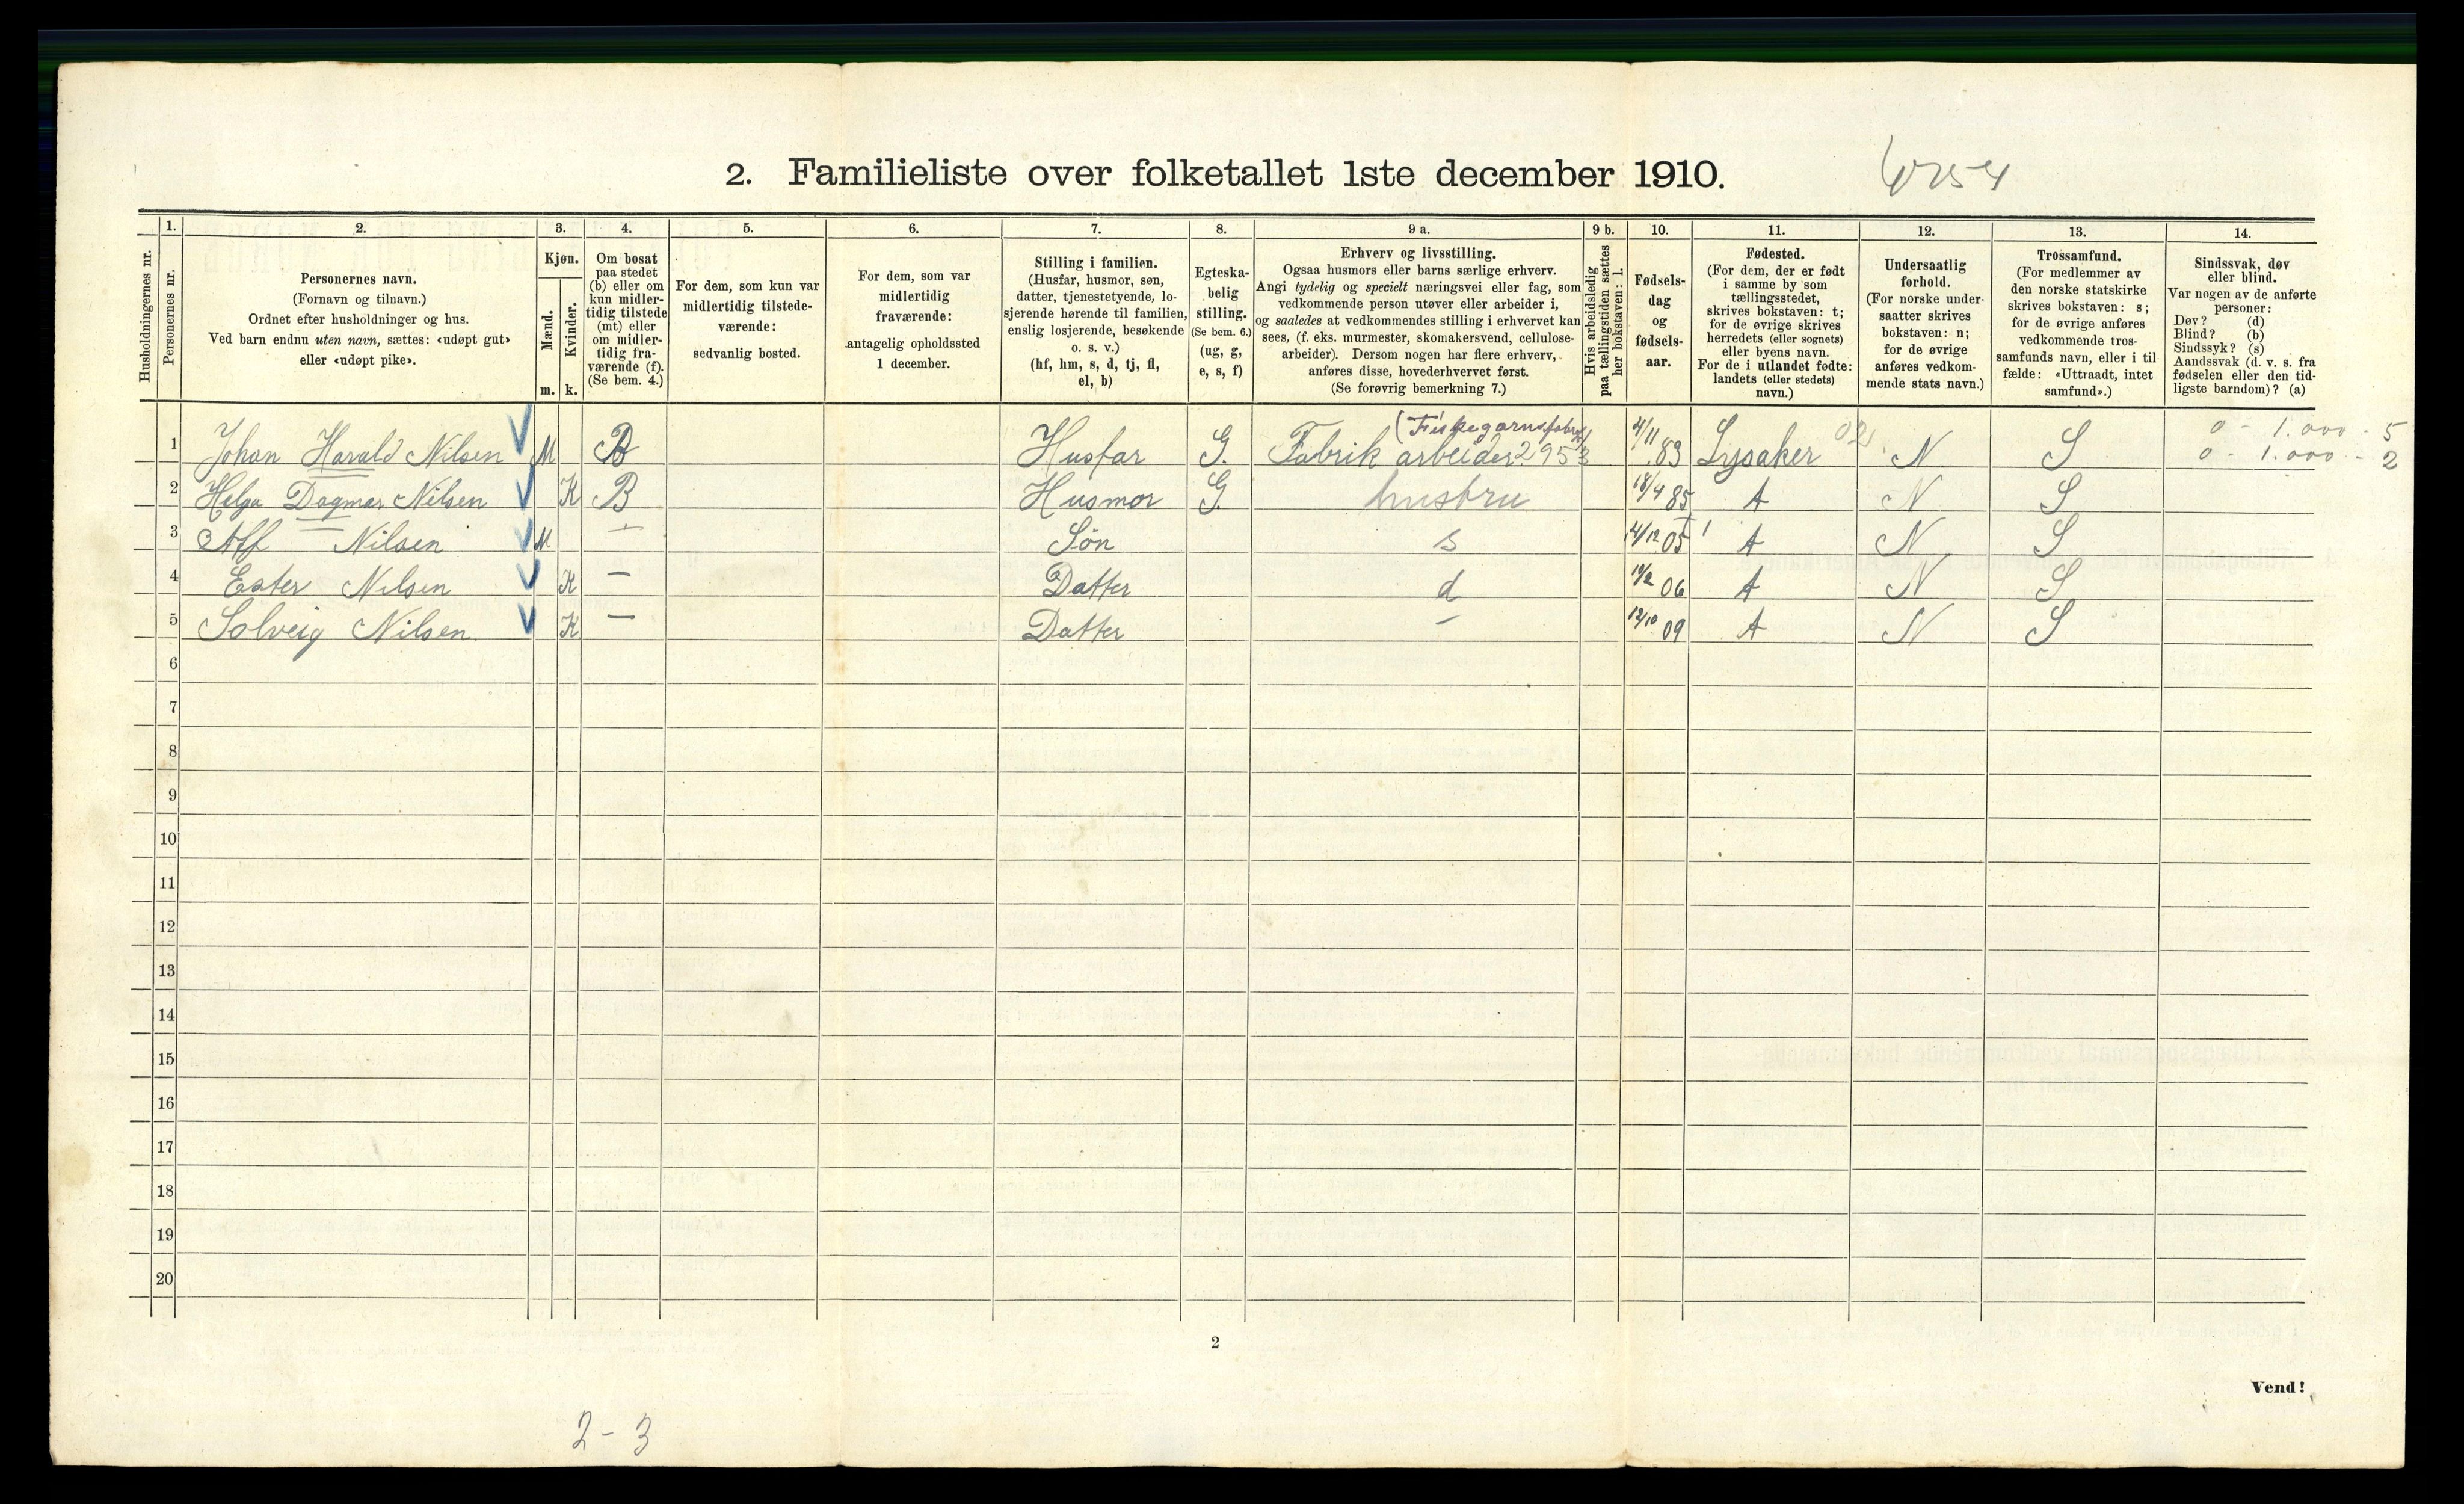 2. Familieliste over folketallet 1ste december 1910.
Husholdningernes nr.
1.
Personernes nr.
2.
Personernes navn.
(Fornavn og tilnavn.)
Ordnet efter husholdninger og hus.
Ved barn endnu uten navn, sættes: «udøpt gut»
eller «udøpt pike».
3.
Kjøn.
Mænd.
Kvinder.
m. k.
4.
Om bosat
paa stedet
(b) eller om
kun midler-
tidig tilstede
(mt) eller
om midler-
tidig fra-
værende (f).
(Se bem. 4.)
5.
For dem, som kun var
midlertidig tilstede-
værende:
sedvanlig bosted.
6.
For dem, som var
midlertidig
fraværende:
antagelig opholdssted
1 december.
7.
Stilling i familien.
(Husfar, husmor, søn,
datter, tjenestetyende, lo-
sjerende hørende til familien,
enslig losjerende, besøkende
o. s. v.)
(hf, hm, s, d, tj, fl,
el, b)
8.
Egteska-
belig
stilling.
(Se bem. 6.)
(ug, g,
e, s, f)
9 a.
Erhverv og livsstilling.
Ogsaa husmors eller barns særlige erhverv.
Angi tydelig og specielt næringsvei eller fag, som
vedkommende person utøver eller arbeider i,
og saaledes at vedkommendes stilling i erhvervet kan
sees, (f. eks. murmester, skomakersvend, cellulose-
arbeider). Dersom nogen har flere erhverv,
anføres disse, hovederhvervet først.
(Se forøvrig bemerkning 7.)
9 b.
Hvis arbeidsledig
paa tællingstiden sættes
her bokstaven: l.
10.
Fødsels-
dag
og
fødsels-
aar.
11.
Fødested.
(For dem, der er født
i samme by som
tællingsstedet,
skrives bokstaven: t;
for de øvrige skrives
herredets (eller sognets)
eller byens navn.
For de i utlandet fødte:
landets (eller stedets)
navn.)
12.
Undersaatlig
forhold.
(For norske under-
saatter skrives
bokstaven: n;
for de øvrige
anføres vedkom-
mende stats navn.)
13.
Trossamfund.
(For medlemmer av
den norske statskirke
skrives bokstaven: s;
for de øvrige anføres
vedkommende tros-
samfunds navn, eller i til
fælde: «Uttraadt, intet
samfund».)
14.
Sindssvak, døv
eller blind.
Var nogen av de anførte
personer:
Døv? (d)
Blind? (b)
Sindssyk? (s)
Aandssvak (d. v. s. fra
fødselen eller den tid-
ligste barndom)? (a)
1 Johan Harald Nilsen M B Husfar G. Fabrik arbeider 2953 4/11 83 Lysaker 02 N S 0 - 1.000 - 5
0 - 1.000 - 2
2 Helga Dagmar Nilsen K B Husmor G. hustru 18/4 85 A N S
3 Alf Nilsen M — Søn s 4/12 05 A N S
4 Ester Nilsen K — Datter d 06 A N S
5 Solveig Nilsen. K — Datter — 12/10 09 A N S
6
7
8
9
10
11
12
13
14
15
16
17
18
19
20
2
Vend!
2-3